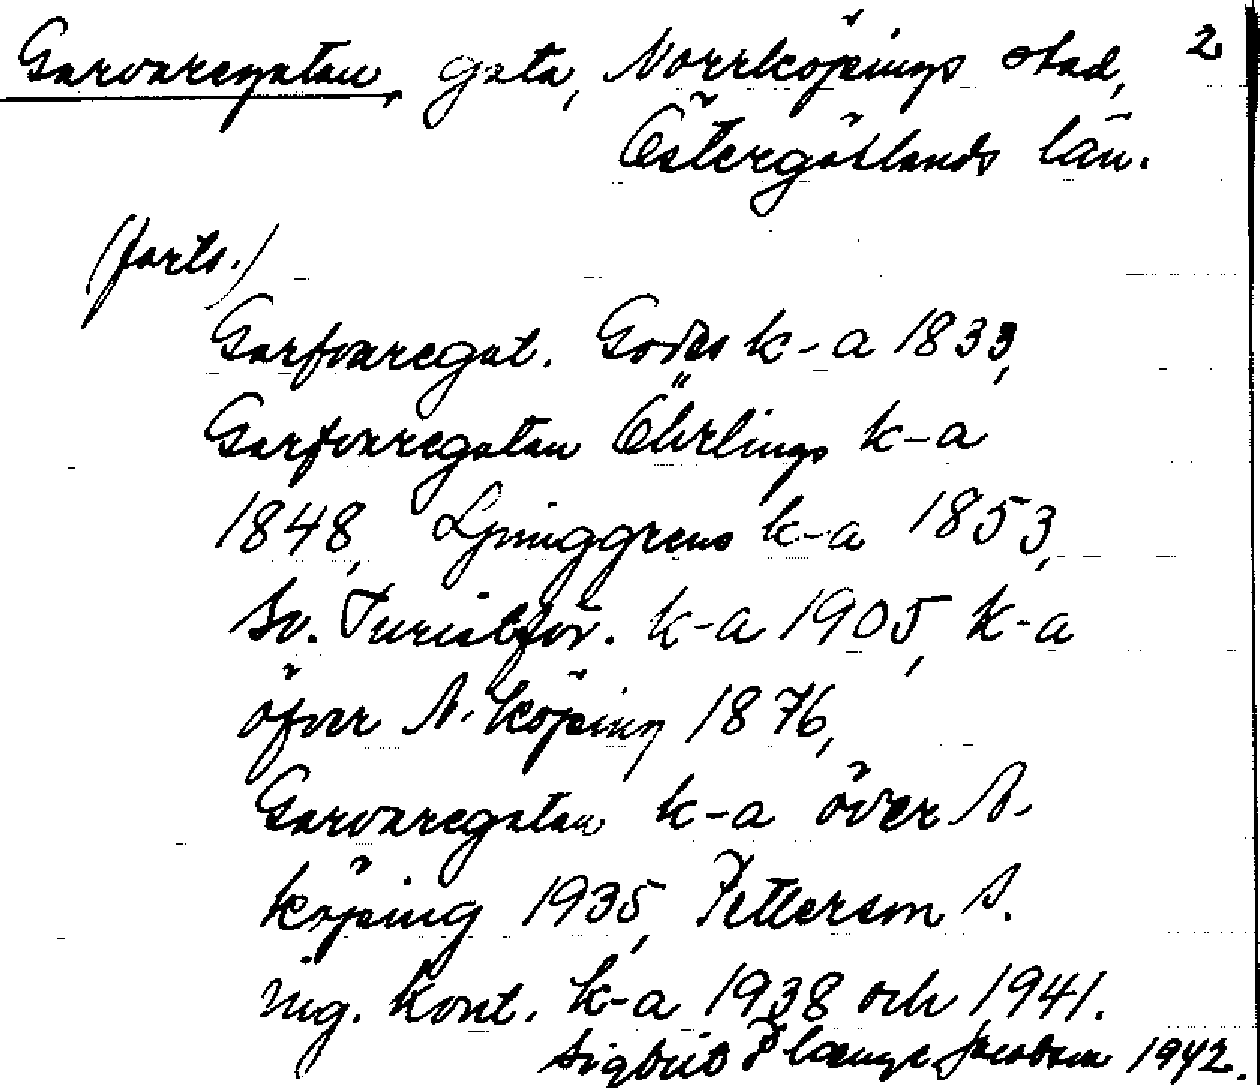 Garvaregatan, gata, Norrköpings stad, 2
Östergötlands län.
(forts.)
Garfvaregat. Godes k-a 1833,
Garfvaregatan Öhrlings k-a
1848, Ljunggrens k-a 1853,
Sv. Turistför. k-a 1905, k-a
öfver N.köping 1876,
Garvaregatan k-a över N-
köping 1935, Petterson S.
ing. kont. k-a 1938 och 1941.
Sigbrit Plænge Jacobson 1942.